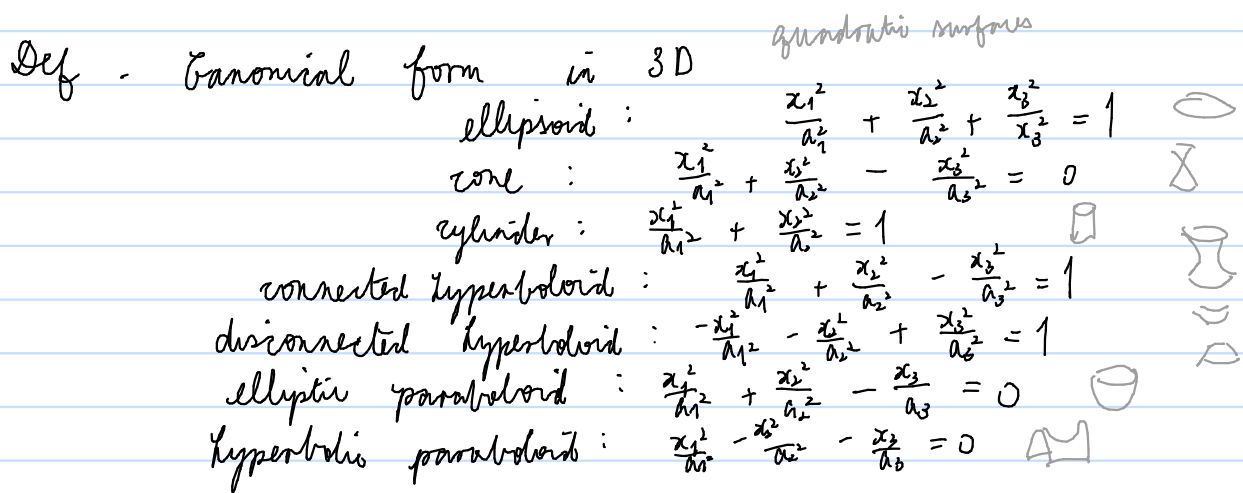 quadratic surfaces
Def - Canonical form in 3D
ellipsoid : x₁²/a₁² + x₂²/a₂² + x₃²/x₃² = 1
cone : x₁²/a₁² + x₂²/a₂² - x₃²/a₃² = 0
cylinder : x₁²/a₁² + x₂²/a₂² = 1
connected hyperboloid : x₁²/a₁² + x₂²/a₂² - x₃²/a₃² = 1
disconnected hyperboloid : -x₁²/a₁² - x₂²/a₂² + x₃²/a₃² = 1
elliptic paraboloid : x₁²/a₁² + x₂²/a₂² - x₃/a₃ = 0
hyperbolic paraboloid : x₁²/a₁² - x₂²/a₂² - x₃/a₃ = 0